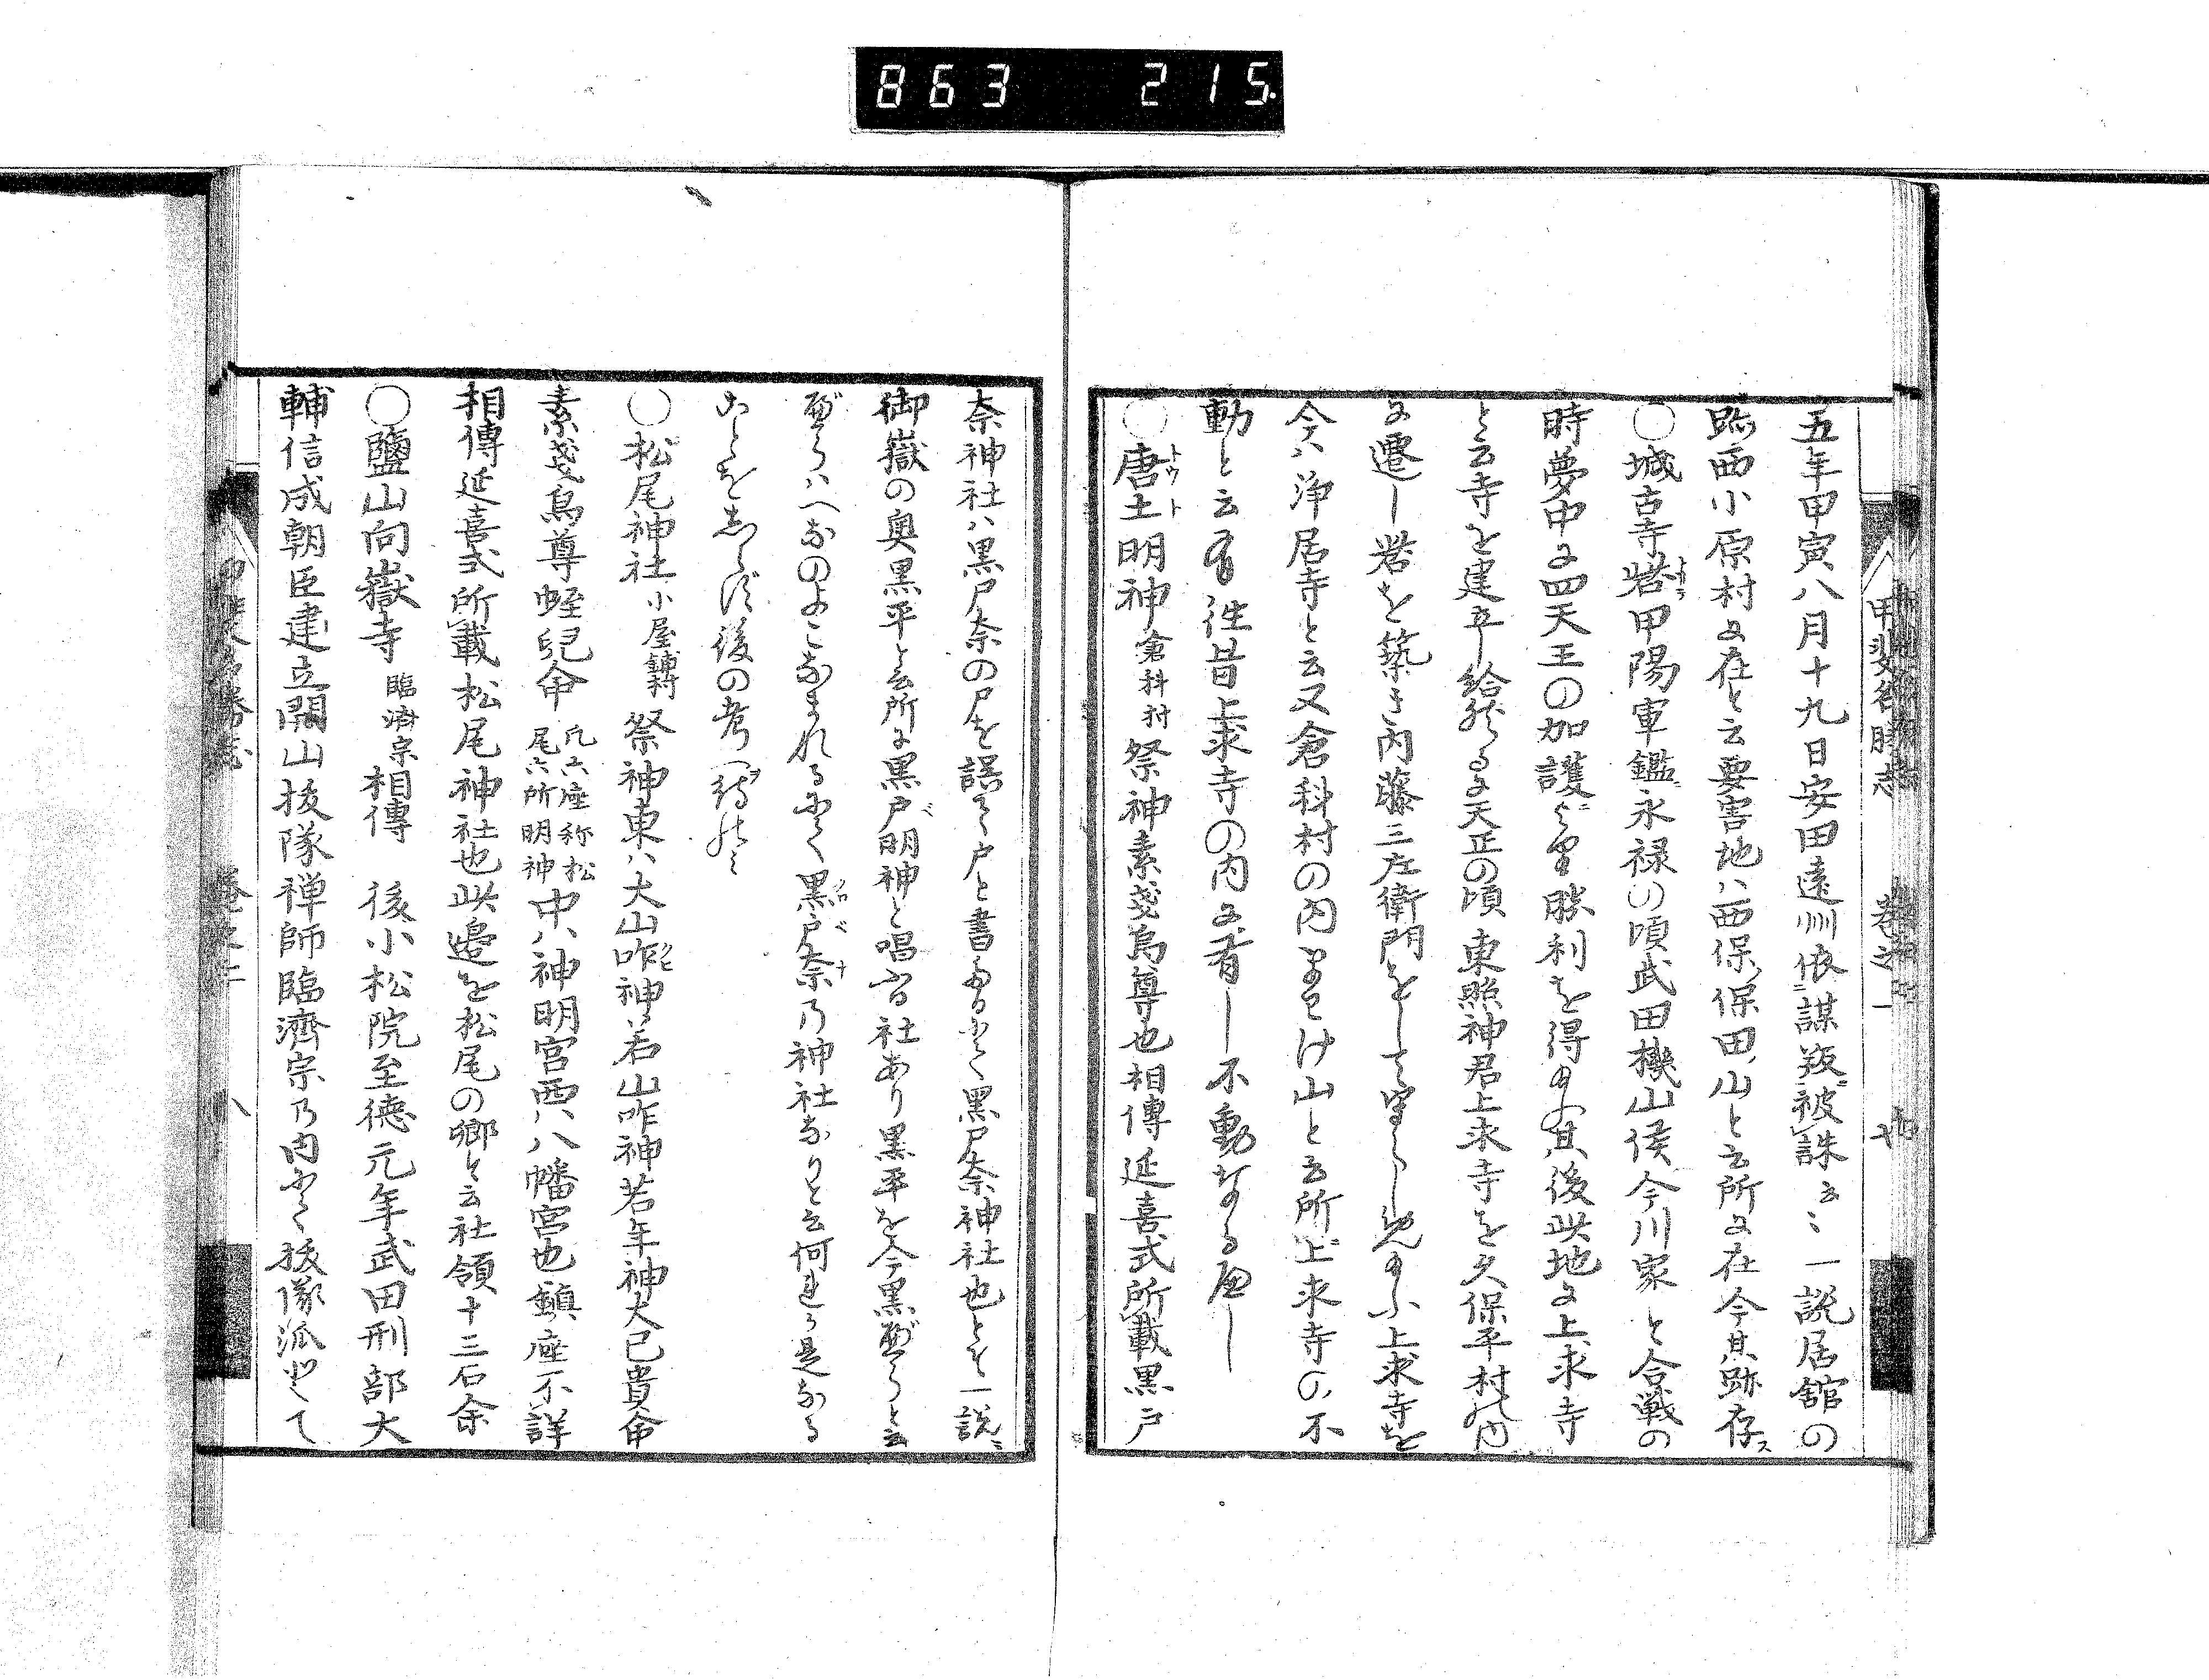 863 215.
甲斐名勝志 卷之一 七
五年甲寅八月十九日安田遠州依謀叛被誅云〻一説居舘の
跡西小原村に在と云要害地ハ西保保田山と云所に在今其跡存ス
○城古寺砦甲陽軍鑑ニ永禄の頃武田機山侯今川家と合戦の
時夢中に四天王の加護により勝利を得給ふ其後此地に上求寺
と云寺を建立し給然るに天正の頃東照神君上求寺を久保平村の内
に遷し砦を築き内藤三左衛門をして守らしめ給ふ上求寺を
今ハ浄居寺と云又倉科村の内まけ山と云所ニ上求寺の不
動と云有往昔上求寺の内に有し不動なるべし
○唐土明神倉科村祭神素戔烏尊也相傳延喜式所載黒戸
奈神社ハ黒戸奈の尸を誤て戸と書るにて黒尸奈神社也とぞ一説ニ
御嶽の奥黒平と云所に黒戸明神と唱る社あり黒平を今黒べらと云
べらハへなのよこなまれるにて黒戸奈乃神社なりと云何れか是なる
ことをしらず後の考へを待のミ
○松尾神社小屋鋪村祭神東ハ大山咋神若山咋神若年神大己貴命
素戔烏尊蛭兒命凡六座称松尾六所明神中ハ神明宮西ハ八幡宮也鎮座不詳
相傳延喜式所載松尾神社也此邉を松尾の郷と云社領十三石余
○鹽山向嶽寺臨濟宗相傳 後小松院至徳元年武田刑部大
輔信成朝臣建立開山抜隊禅師臨濟宗乃内にて抜隊派とて